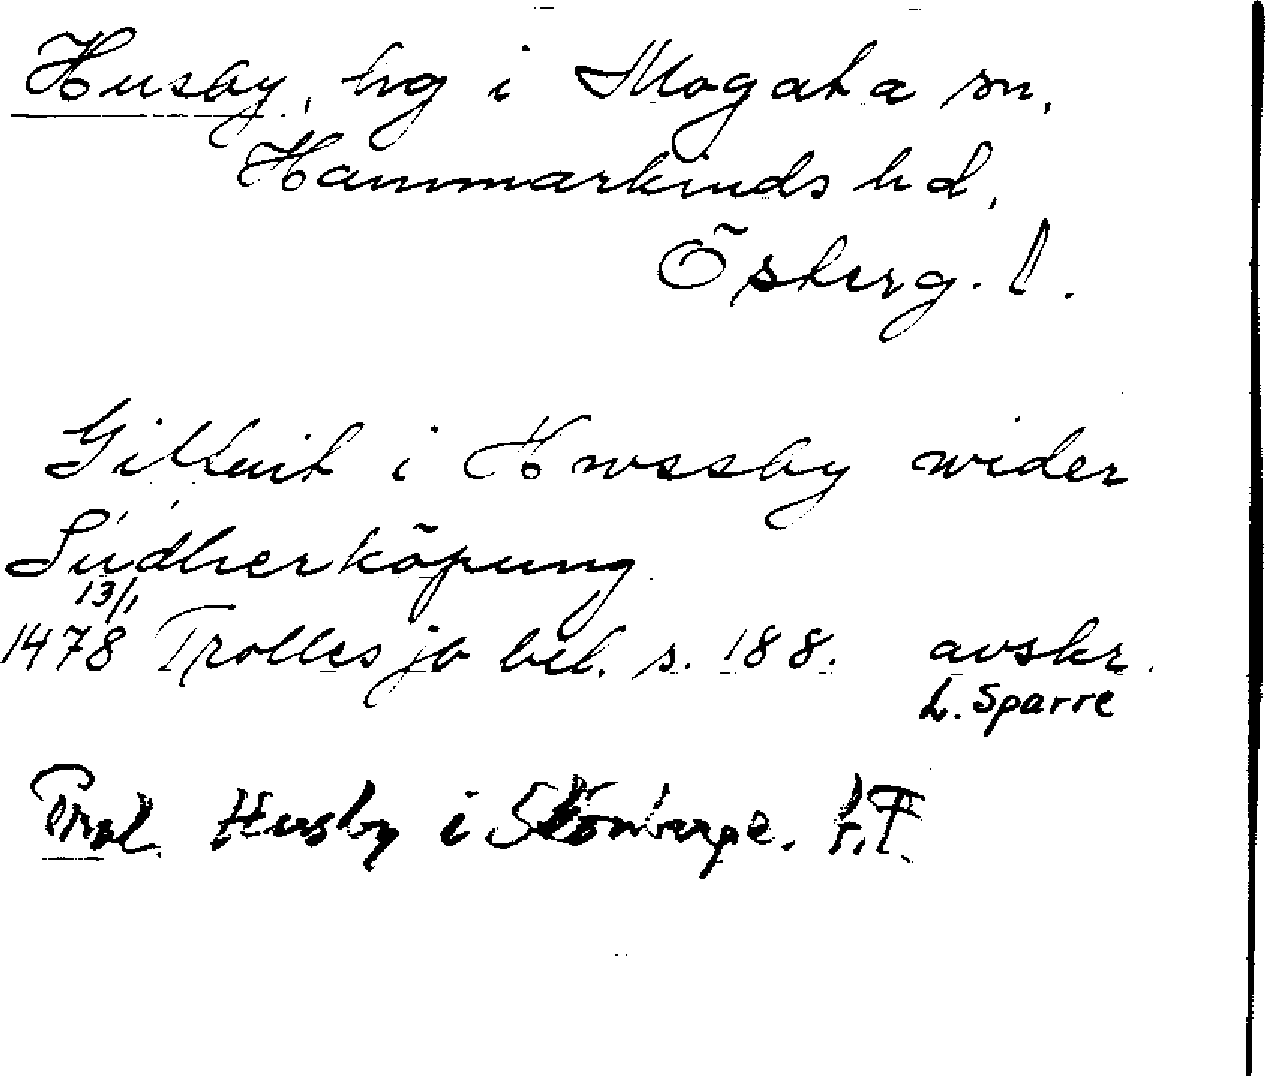 Husby, hg i Mogata sn,
Hammarkinds hd,
Östherg. l.
i Hwssby wider
Sudherköpung
13/1
1478 Trolles jb bil. s. 188. avskr.
L. Sparre
Trol. Husby i Skönberga.